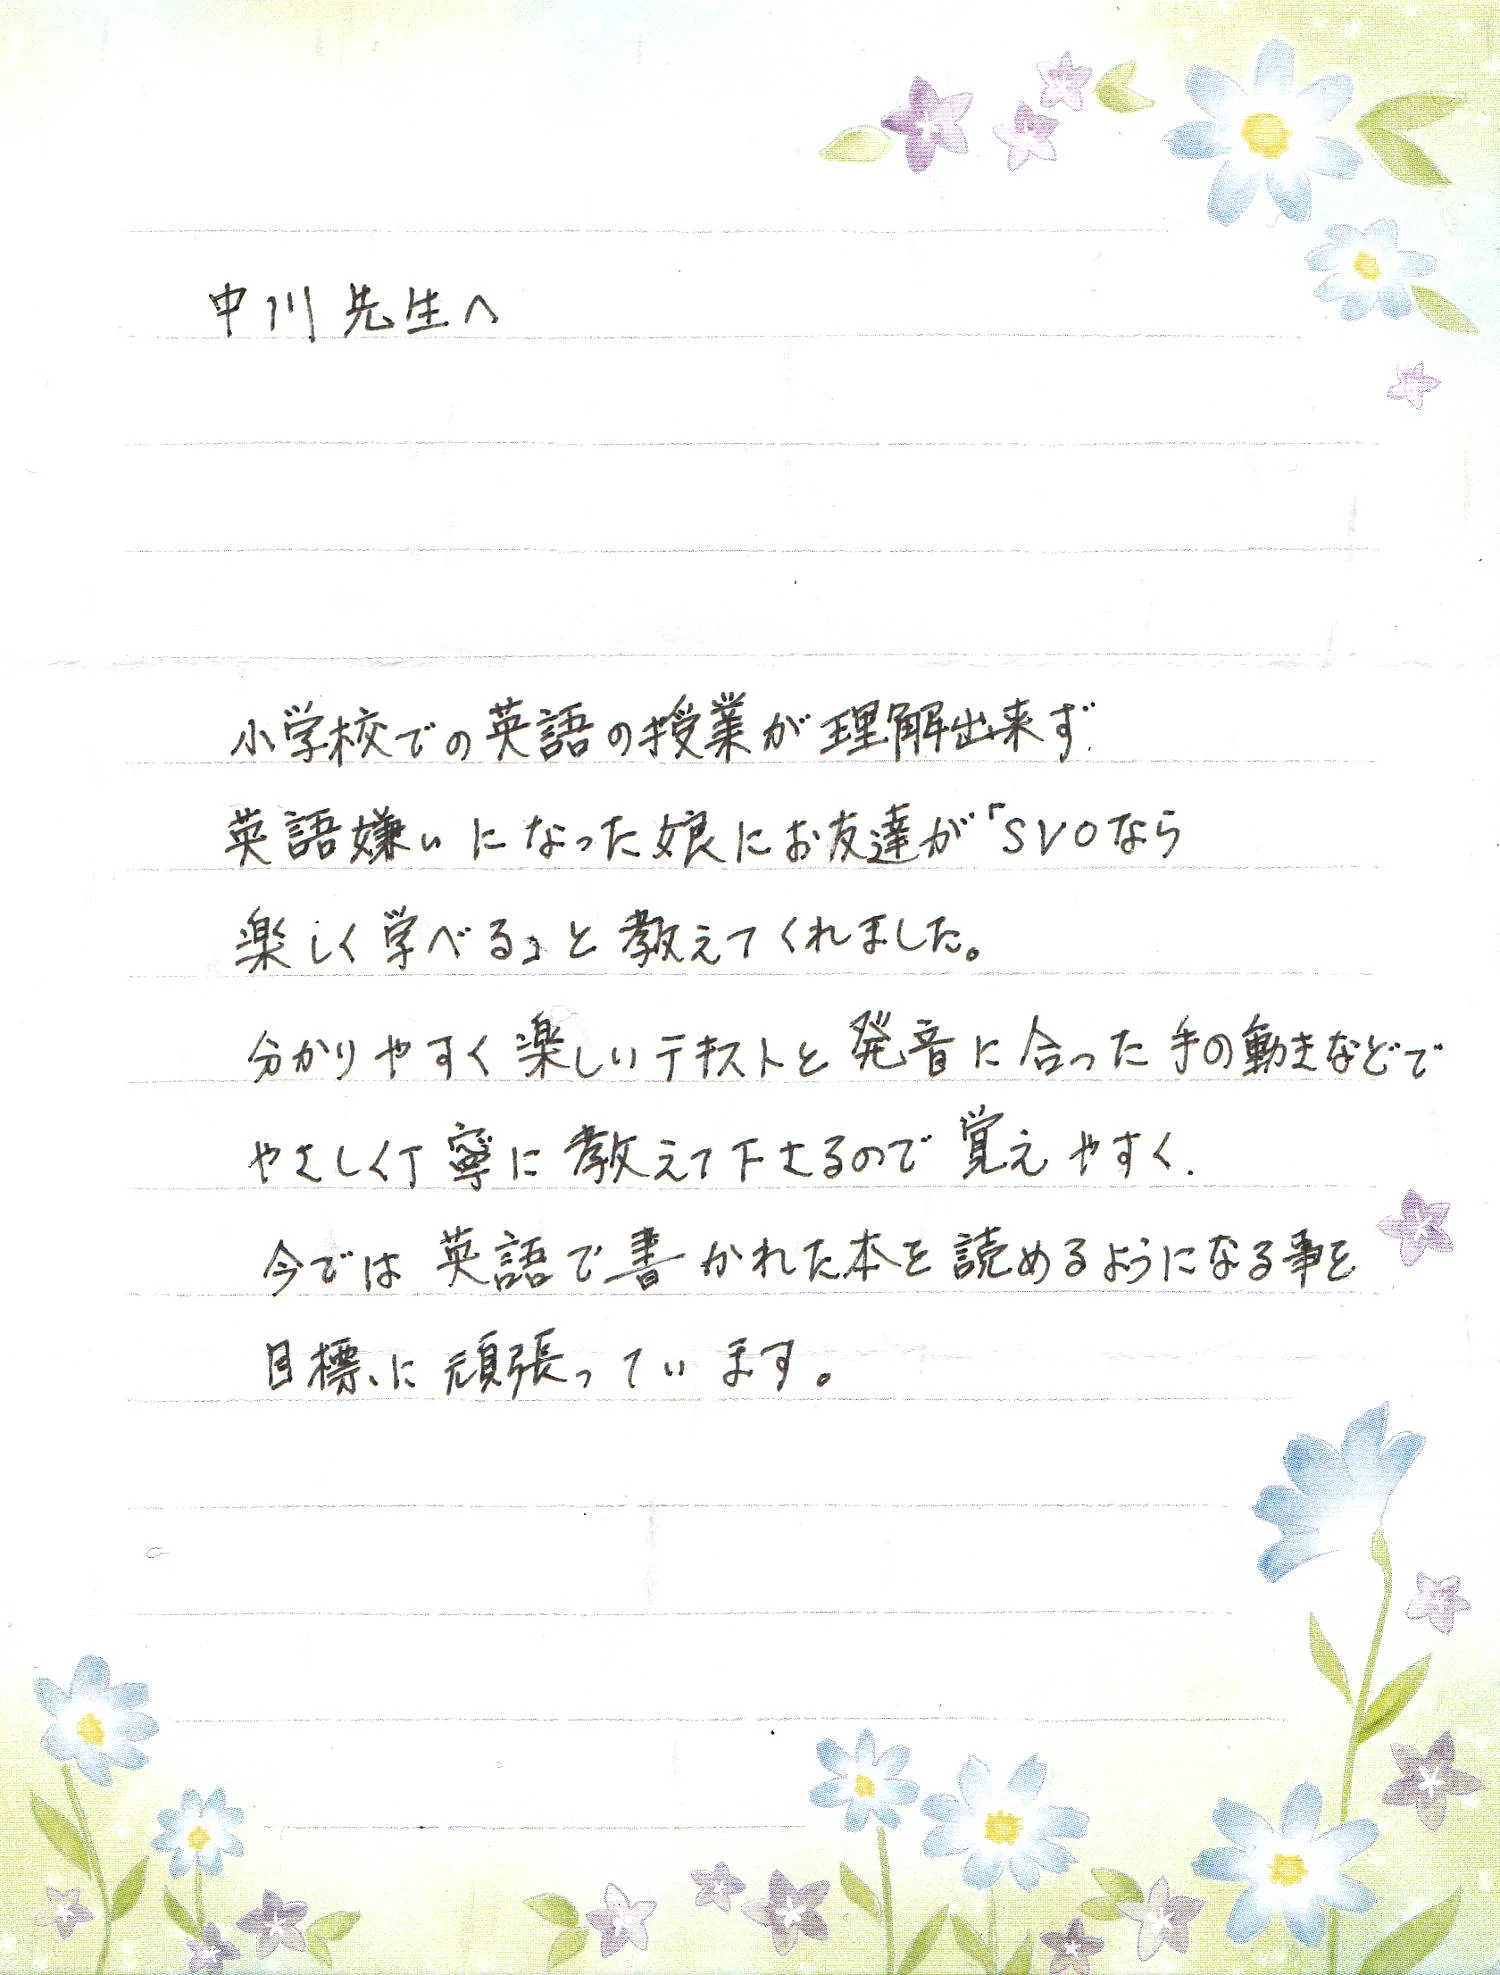 中川先生へ
小学校での英語の授業が理解出来ず、
英語嫌いになった娘にお友達が「SVOなら
楽しく学べる」と教えてくれました。
分かりやすく楽しいテキストと発音に合った手の動きなどで
やさしく丁寧に教えて下さるので覚えやすく、
今では英語で書かれた本を読めるようになる事を
目標に頑張っています。